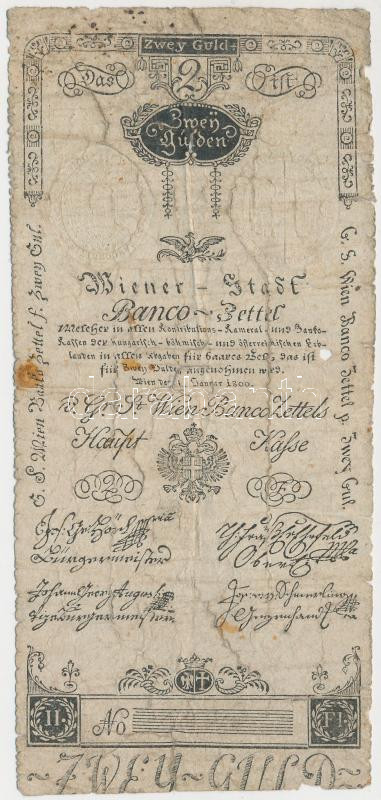 Zwey Guld
Das
2
ist
Zwey
Gulden
Wiener - Stadt
Banco - Zettel
Welcher in allen Kontributions - Kameral - und Banko-
Kassen der hungarisch - böhmisch - und österreichischen Erb-
landen in allen Abgaben für baares Geld, das ist
für Zwey Gulden angenommen wird.
Wien den 1. Januar 1800.
Gr. St. Wien Banco Zettels
Haupt Kasse
2 F
Bürgermeister
Johann Georg Augusti
Vizebürgermeister
Wien Banco Zettel f. Zwey Gul.
Wien Banco Zettel p. Zwey Gul.
II.
No
FI.
ZWEY - GULD